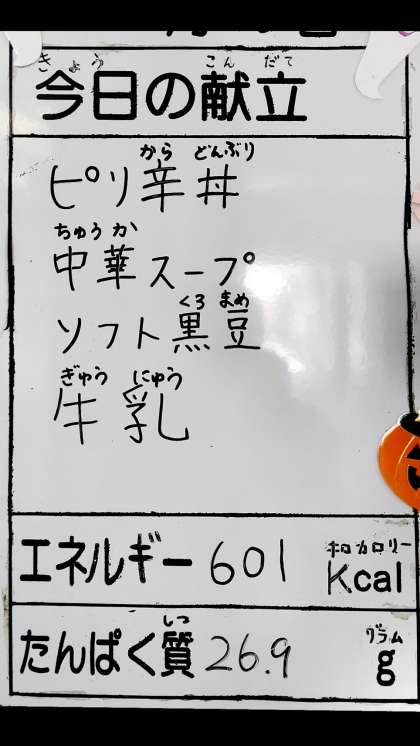 きょう こん だて
今日の献立
から どんぶり
ピリ辛丼
ちゅうか
中華スープ
くろ まめ
ソフト黒豆
ぎゅう にゅう
牛乳
キロカロリー
エネルギー 601 Kcal
しつ グラム
たんぱく質 26.9 g